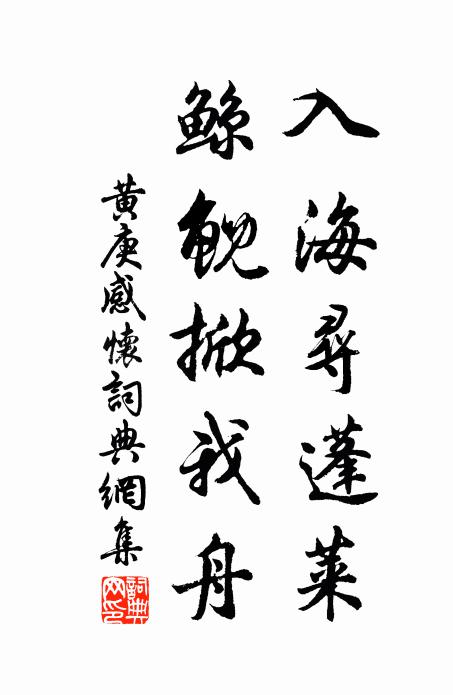 入海尋蓬萊
鯨鯢掀我舟
黄庚感懷詞典網集
詞典网印